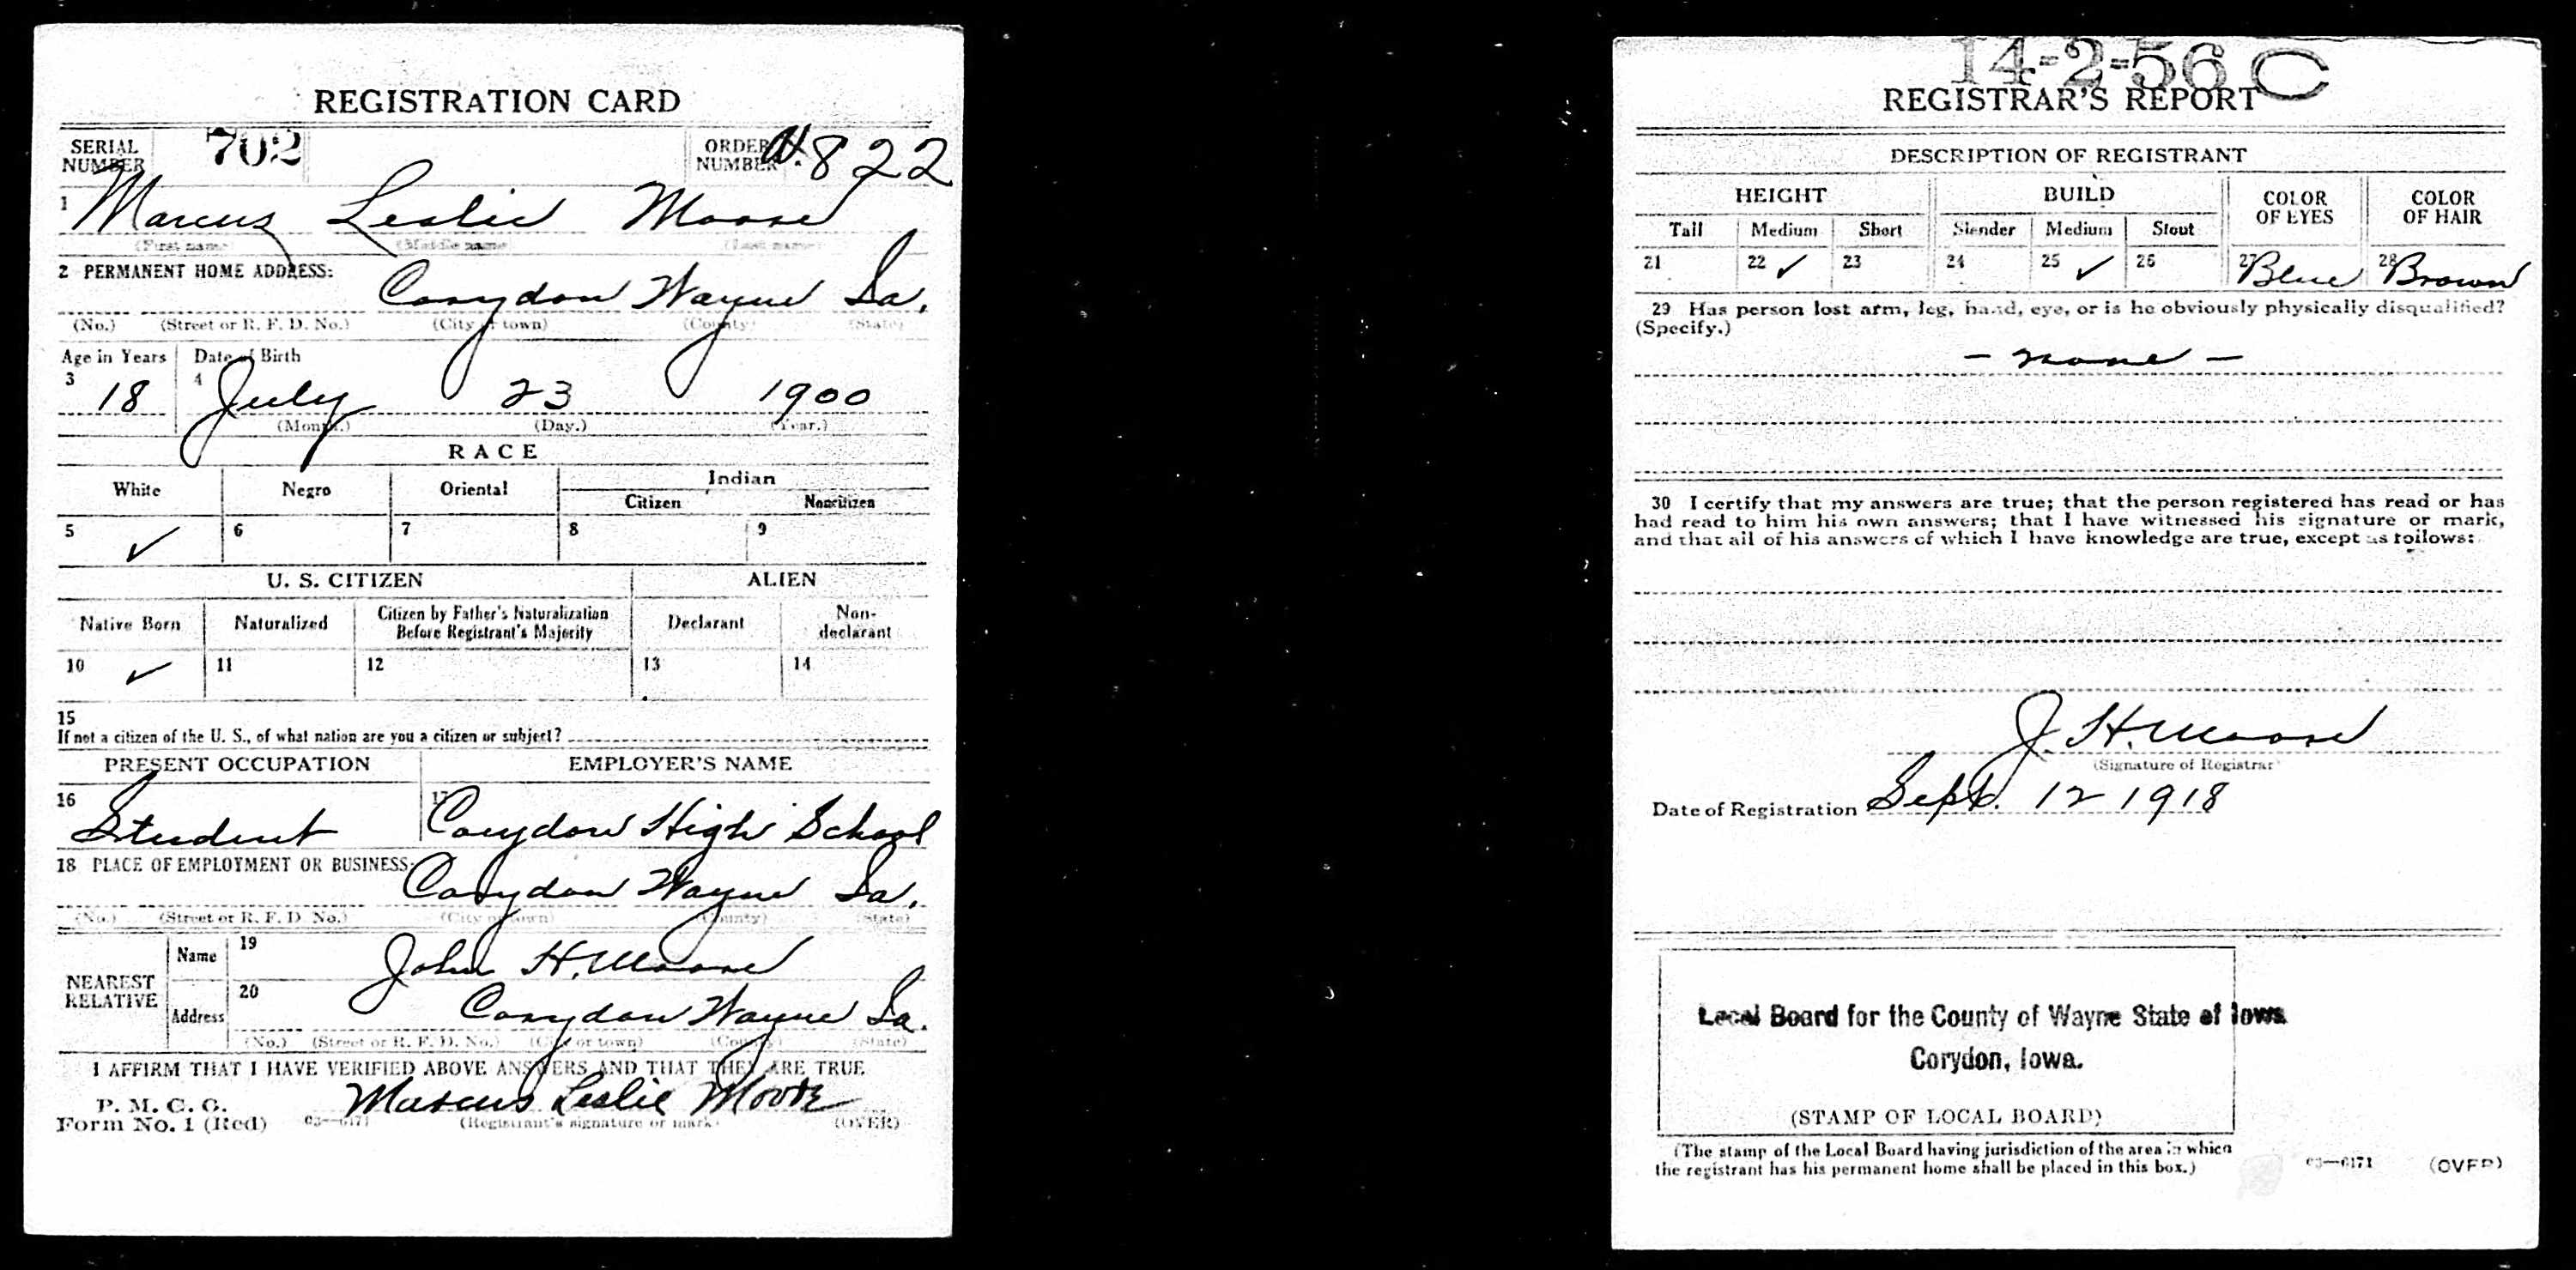 REGISTRATION CARD
SERIAL NUMBER 702 ORDER NUMBER A 822
1 Marcus Leslie Moore
(First name) (Middle name) (Last name)
2 PERMANENT HOME ADDRESS:
Corydon Wayne Ia.
(No.) (Street or R. F. D. No.) (City or town) (County) (State)
Age in Years Date of Birth
3 18 4 July 23 1900
(Month.) (Day.) (Year.)
RACE
White Negro Oriental Indian
Citizen Noncitizen
5 ✓ 6 7 8 9
U. S. CITIZEN ALIEN
Native Born Naturalized Citizen by Father's Naturalization Before Registrant's Majority Declarant Non-declarant
10 ✓ 11 12 13 14
15
If not a citizen of the U. S., of what nation are you a citizen or subject?
PRESENT OCCUPATION EMPLOYER'S NAME
16 Student 17 Corydon High School
18 PLACE OF EMPLOYMENT OR BUSINESS:
Corydon Wayne Ia.
(No.) (Street or R. F. D. No.) (City or town) (County) (State)
NEAREST RELATIVE
Name 19 John H. Moore
Address 20 Corydon Wayne Ia.
(No.) (Street or R. F. D. No.) (City or town) (County) (State)
I AFFIRM THAT I HAVE VERIFIED ABOVE ANSWERS AND THAT THEY ARE TRUE
P. M. G. O.
Form No. 1 (Red) 03—6171 Marcus Leslie Moore
(Registrant's signature or mark) (OVER)
14-2-56 C
REGISTRAR'S REPORT
DESCRIPTION OF REGISTRANT
HEIGHT BUILD COLOR OF EYES COLOR OF HAIR
Tall Medium Short Slender Medium Stout
21 22 ✓ 23 24 25 ✓ 26 27 Blue 28 Brown
29 Has person lost arm, leg, hand, eye, or is he obviously physically disqualified?
(Specify.)
- none -
30 I certify that my answers are true; that the person registered has read or has
had read to him his own answers; that I have witnessed his signature or mark,
and that all of his answers of which I have knowledge are true, except as follows:
J. H. Moore
(Signature of Registrar)
Date of Registration Sept. 12 1918
Local Board for the County of Wayne State of Iowa
Corydon, Iowa.
(STAMP OF LOCAL BOARD)
(The stamp of the Local Board having jurisdiction of the area in which
the registrant has his permanent home shall be placed in this box.)
03—6171 (OVER)